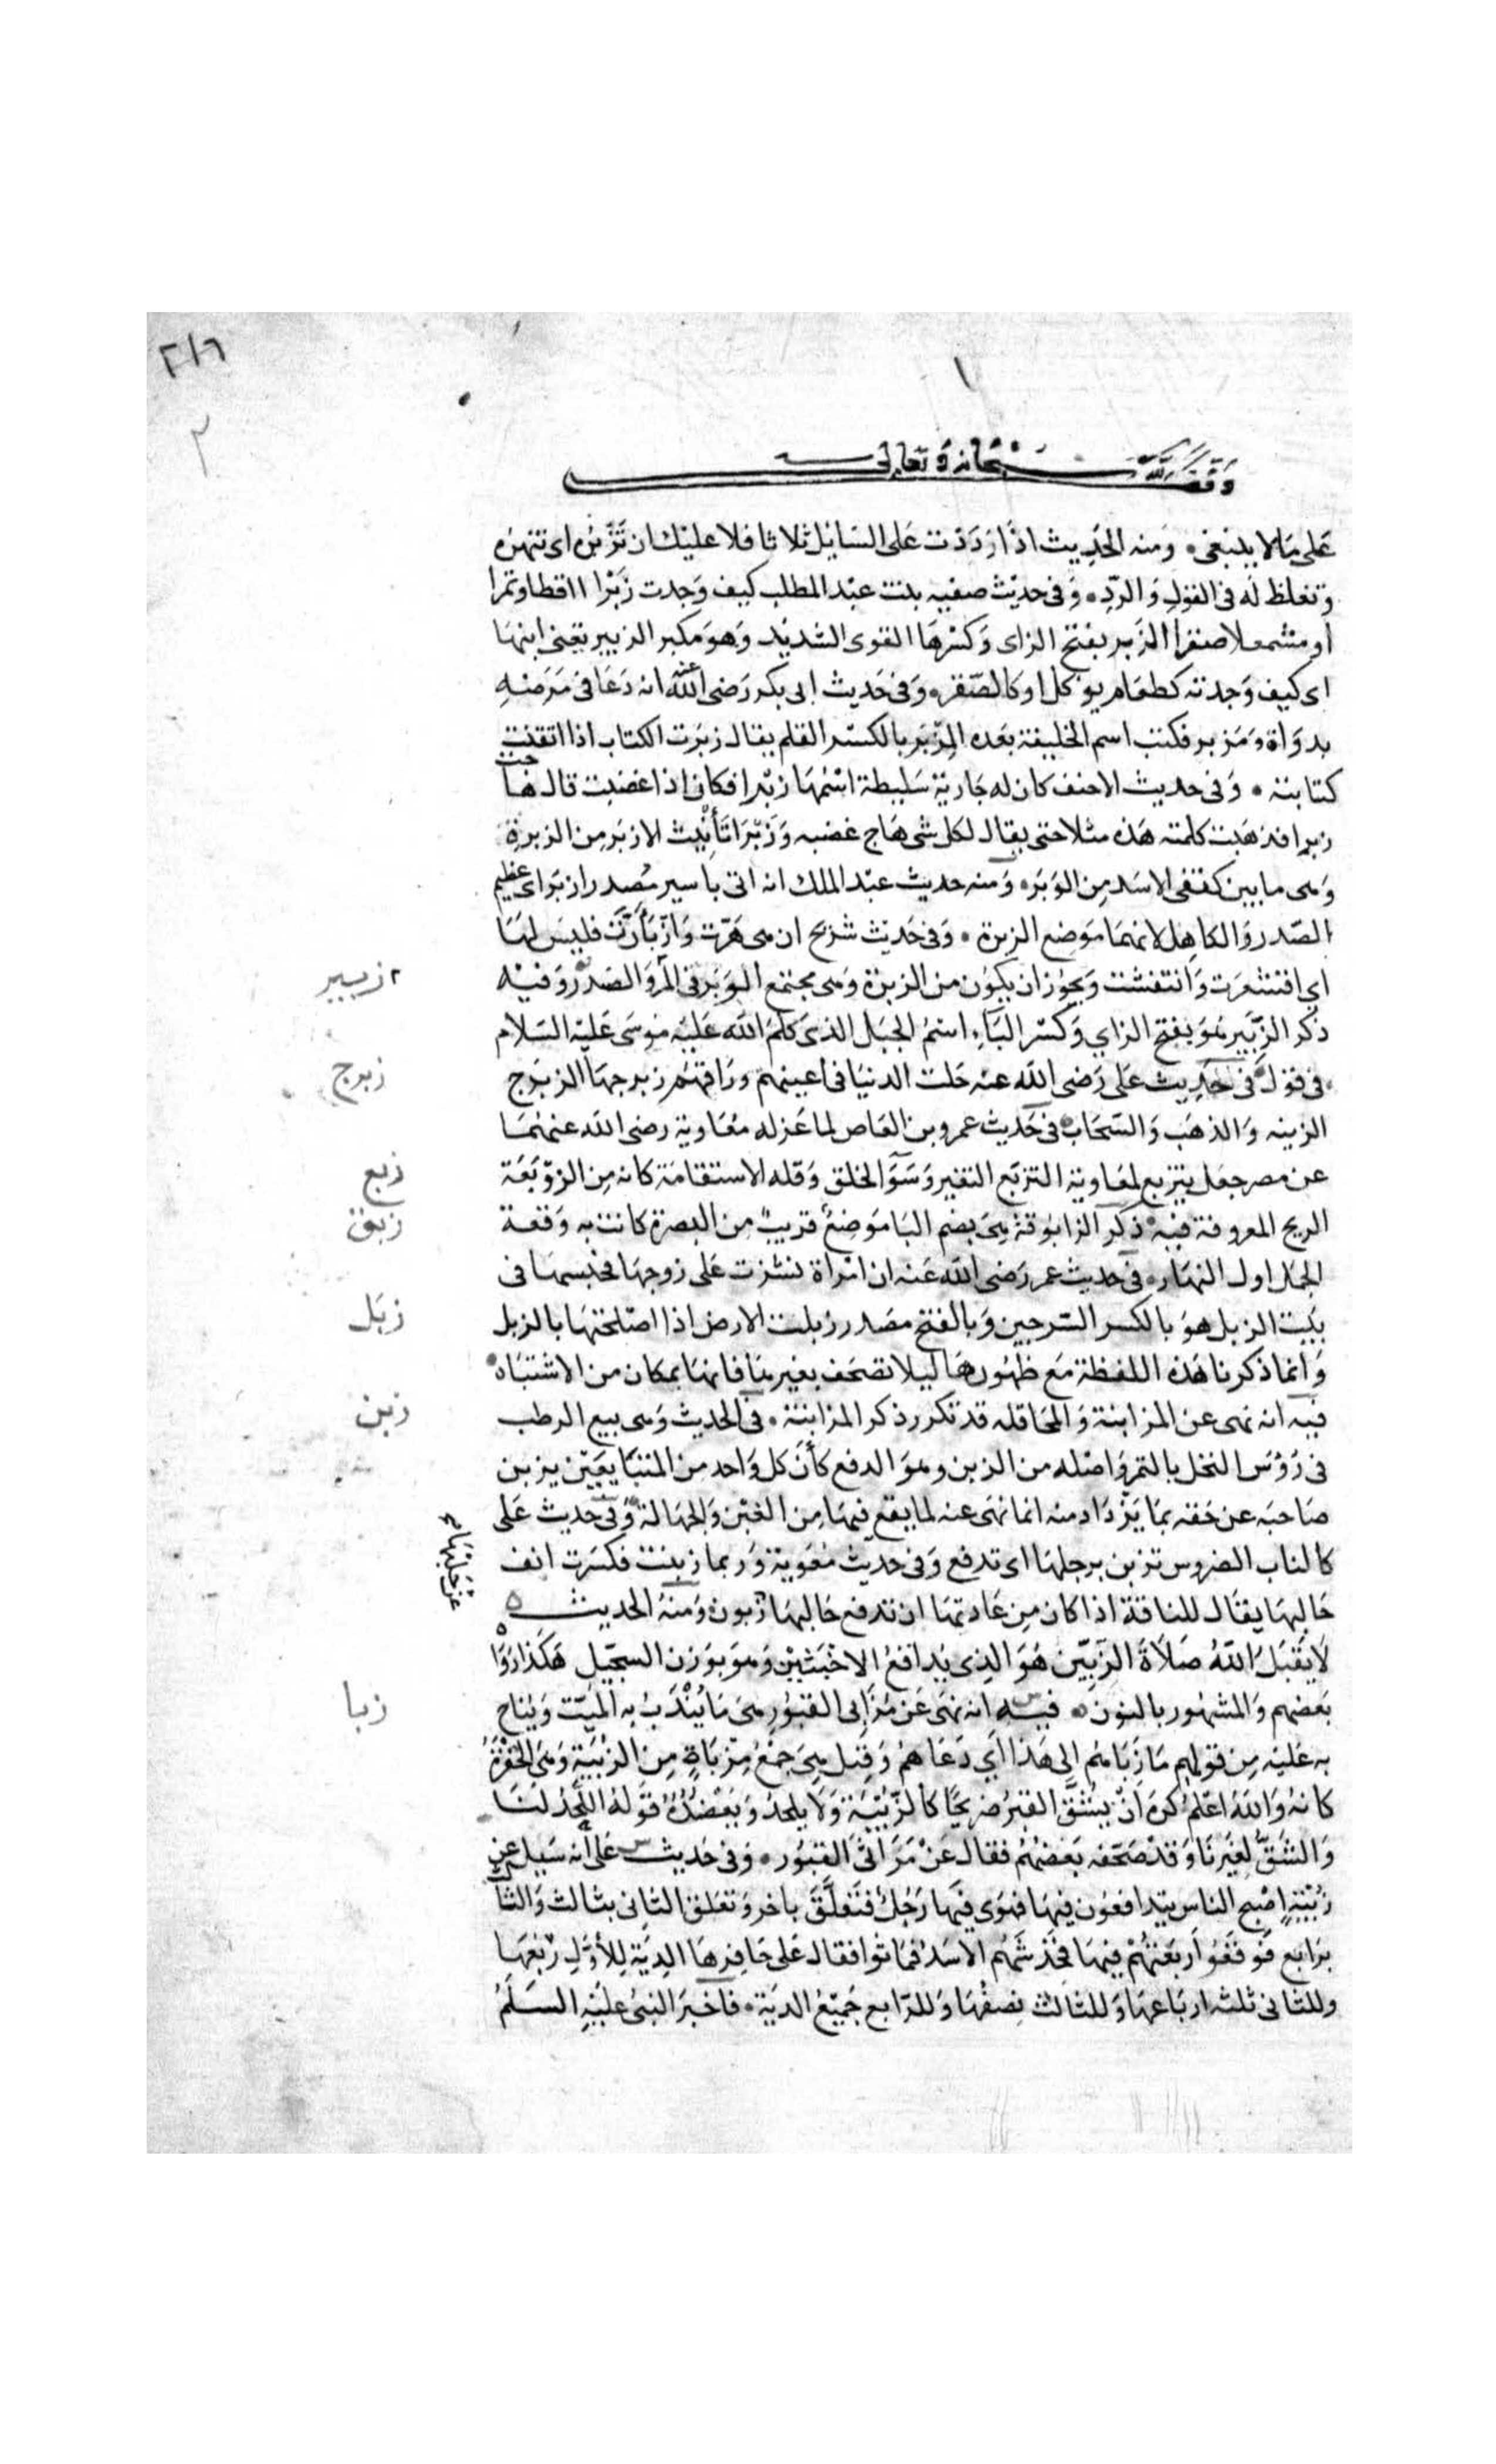 ٢١٦
١
٢
وقف لله سبحانه وتعالى
على ما لا ينبغى ٠ ومنه الحديث اذا رددت على السايل ثلاثا فلا عليك ان تزبره اى تنهره
وتغلظ له فى القول والرد ٠ وفى حديث صفيه بنت عبد المطلب كيف وجدت زبرا ااقطا وتمرا
او مشمعلا صقرا الزبر بفتح الزاى وكسرها القوى الشديد وهو مكبر الزبير يعنى ابنها
اى كيف وجدته كطعام يوكل او كالصقر ٠ وفى حديث ابى بكر رضى الله عنه انه دعا فى مرضه
بدواة ومزبر فكتب اسم الخليفة بعده المزبر بالكسر القلم يقال زبرت الكتاب اذا اتقنت
كتابته ٠ وفى حديث الاحنف كان له جارية سليطة اسمها زبرا فكان اذا غضبت قال هاجت
زبرا فذهبت كلمته هذه مثلا حتى يقال لكل شى هاج غضبه وزبرا تأنيث الازبر من الزبرة
وهى ما بين كتفى الاسد من الوبر ٠ ومنه حديث عبد الملك انه اتى باسير مصدر ازبر اى عظيم
الصدر والكاهل لانهما موضع الزبرة ٠ وفى حديث شريح ان هى هرت وازبأرت فليس لها
اي اقشعرت وانتفشت ويجوز ان يكون من الزبرة وهى مجتمع الوبر فى المر والصدر وفيه
ازبير
ذكر الزبير هو بفتح الزاي وكسر الباء اسم الجبل الذى كلم الله عليه موسى عليه السلام
فى قول ٠ فى حديث على رضى الله عنه حلت الدنيا فى اعينهم وراقهم زبرجها الزبرج
زبرج
الزينه والذهب والسحاب ٠ فى حديث عمرو بن العاص لما عزله معاوية رضى الله عنهما
عن مصر جعل يتزبع لمعاوية التزبع التغير وسوء الخلق وقله الاستقامة كانه من الزوبعة
زبع
الريح المعروفة فيه ذكر الزابوقة هى بضم البا موضع قريب من البصرة كانت به وقعة
زبق
الجمل اول النهار ٠ فى حديث عمر رضى الله عنه ان امراة نشزت على زوجها فحبسها فى
بيت الزبل هو بالكسر السرجين وبالفتح مصدر زبلت الارض اذا اصلحتها بالزبل
زبل
وانما ذكرنا هذه اللفظة مع ظهورها ليلا تصحف بغيرها فانها بمكان من الاشتباه ٠
فيه انه نهى عن المزابنة والمحاقله قد تكرر ذكر المزابنة ٠ فى الحديث وهى بيع الرطب
زبن
فى رؤس النخل بالتمر واصله من الزبن وهو الدفع كأن كل واحد من المتبايعين يزبن
صاحبه عن حقه بما يزداد منه انما نهى عنه لما يقع فيها من الغبن والجهالة وفى حديث على
كالناب الضروس تزبن برجلها اى تدفع وفى حديث معوية وربما زبنت فكسرت انف
عن حلبها
حالبها يقال للناقة اذا كان من عادتها ان تدفع حالبها زبون ومنه الحديث ٥
لا يقبل الله صلاة الزبين هو الذى يدافع الاخبثين وهو بوزن السجيل هكذا رواه
بعضهم والمشهور بالنون ٠ فيه انه نهى عن مزابى القبور هى ما يندب به الميت ويناح
زبا
به عليه من قولهم ما زباهم الى هذا اي دعاهم وقيل هى جمع مزباة من الزبية وهى الحفرة
كانه والله اعلم كره ان يشق القبر ضريحا كالزبية ولا يلحد ويعضده قوله اللحد لنا
والشق لغيرنا وقد صحفه بعضهم فقال عن مراثى القبور ٠ وفى حديث على انه سيل عن
زبية اصبح الناس يتدافعون فيها فهوى فيها رجل فتعلق باخر وتعلق الثانى بثالث والثالث
برابع فوقعوا اربعتهم فيها فخدشهم الاسد فماتوا فقال على حافرها الدية للأول ربعها
وللثانى ثلثه ارباعها وللثالث نصفها وللرابع جميع الدية ٠ فاخبر النبى عليه السلم